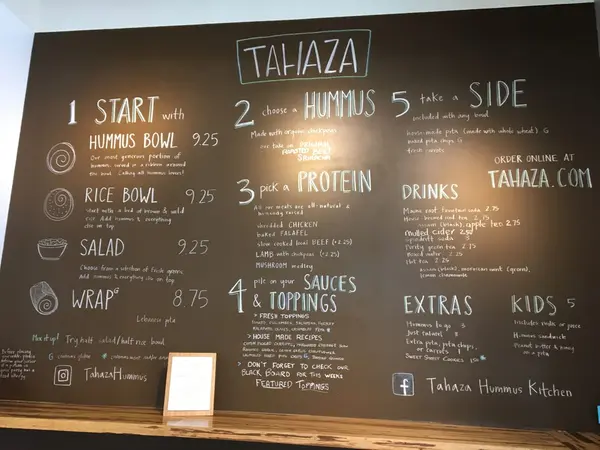 TAHAZA
1 START with
HUMMUS BOWL 9.25
Our most generous portion of
hummus served in a ribbon around
the bowl. Calling all hummus lovers!
RICE BOWL 9.25
Start with a bed of brown & wild
rice. Add hummus & everything
else on top
SALAD 9.25
Choose from a selection of fresh greens.
Add hummus & everything else on top
WRAP G 8.75
Lebanese pita
Mix it up! Try half salad/half rice bowl
G contains gluten
TahazaHummus
2 choose a HUMMUS
Made with organic chickpeas
3 pick a PROTEIN
All our meats are all-natural &
humanely raised
shredded CHICKEN
baked FALAFEL
slow cooked local BEEF (+2.25)
LAMB with chickpeas (+2.25)
MUSHROOM medley
4 pile on your SAUCES
& TOPPINGS
> FRESH TOPPINGS
> HOUSE MADE RECIPES
> DON'T FORGET TO CHECK OUR
BLACK BOARD FOR THIS WEEKS
FEATURED TOPPINGS
5 take a SIDE
included with any bowl
house-made pita (made with whole wheat) G
baked pita chips G
fresh carrots
ORDER ONLINE AT
TAHAZA.COM
DRINKS
Maine root fountain soda 2.75
House brewed iced tea 2.75
assam (black), apple tea 2.75
mulled cider 2.50
Spindrift soda 3
Purity green tea 2.75
Boxed water 2.25
Hot tea 2.25
assam (black), moroccan mint (green),
lemon chamomile
EXTRAS
Hummus to go 3
Just falafel 3
Extra pita, pita chips,
or carrots 1
Sweet Street Cookies 1.50
KIDS 5
Includes milk or juice
Hummus sandwich
Peanut butter & honey
on a pita
Tahaza Hummus Kitchen